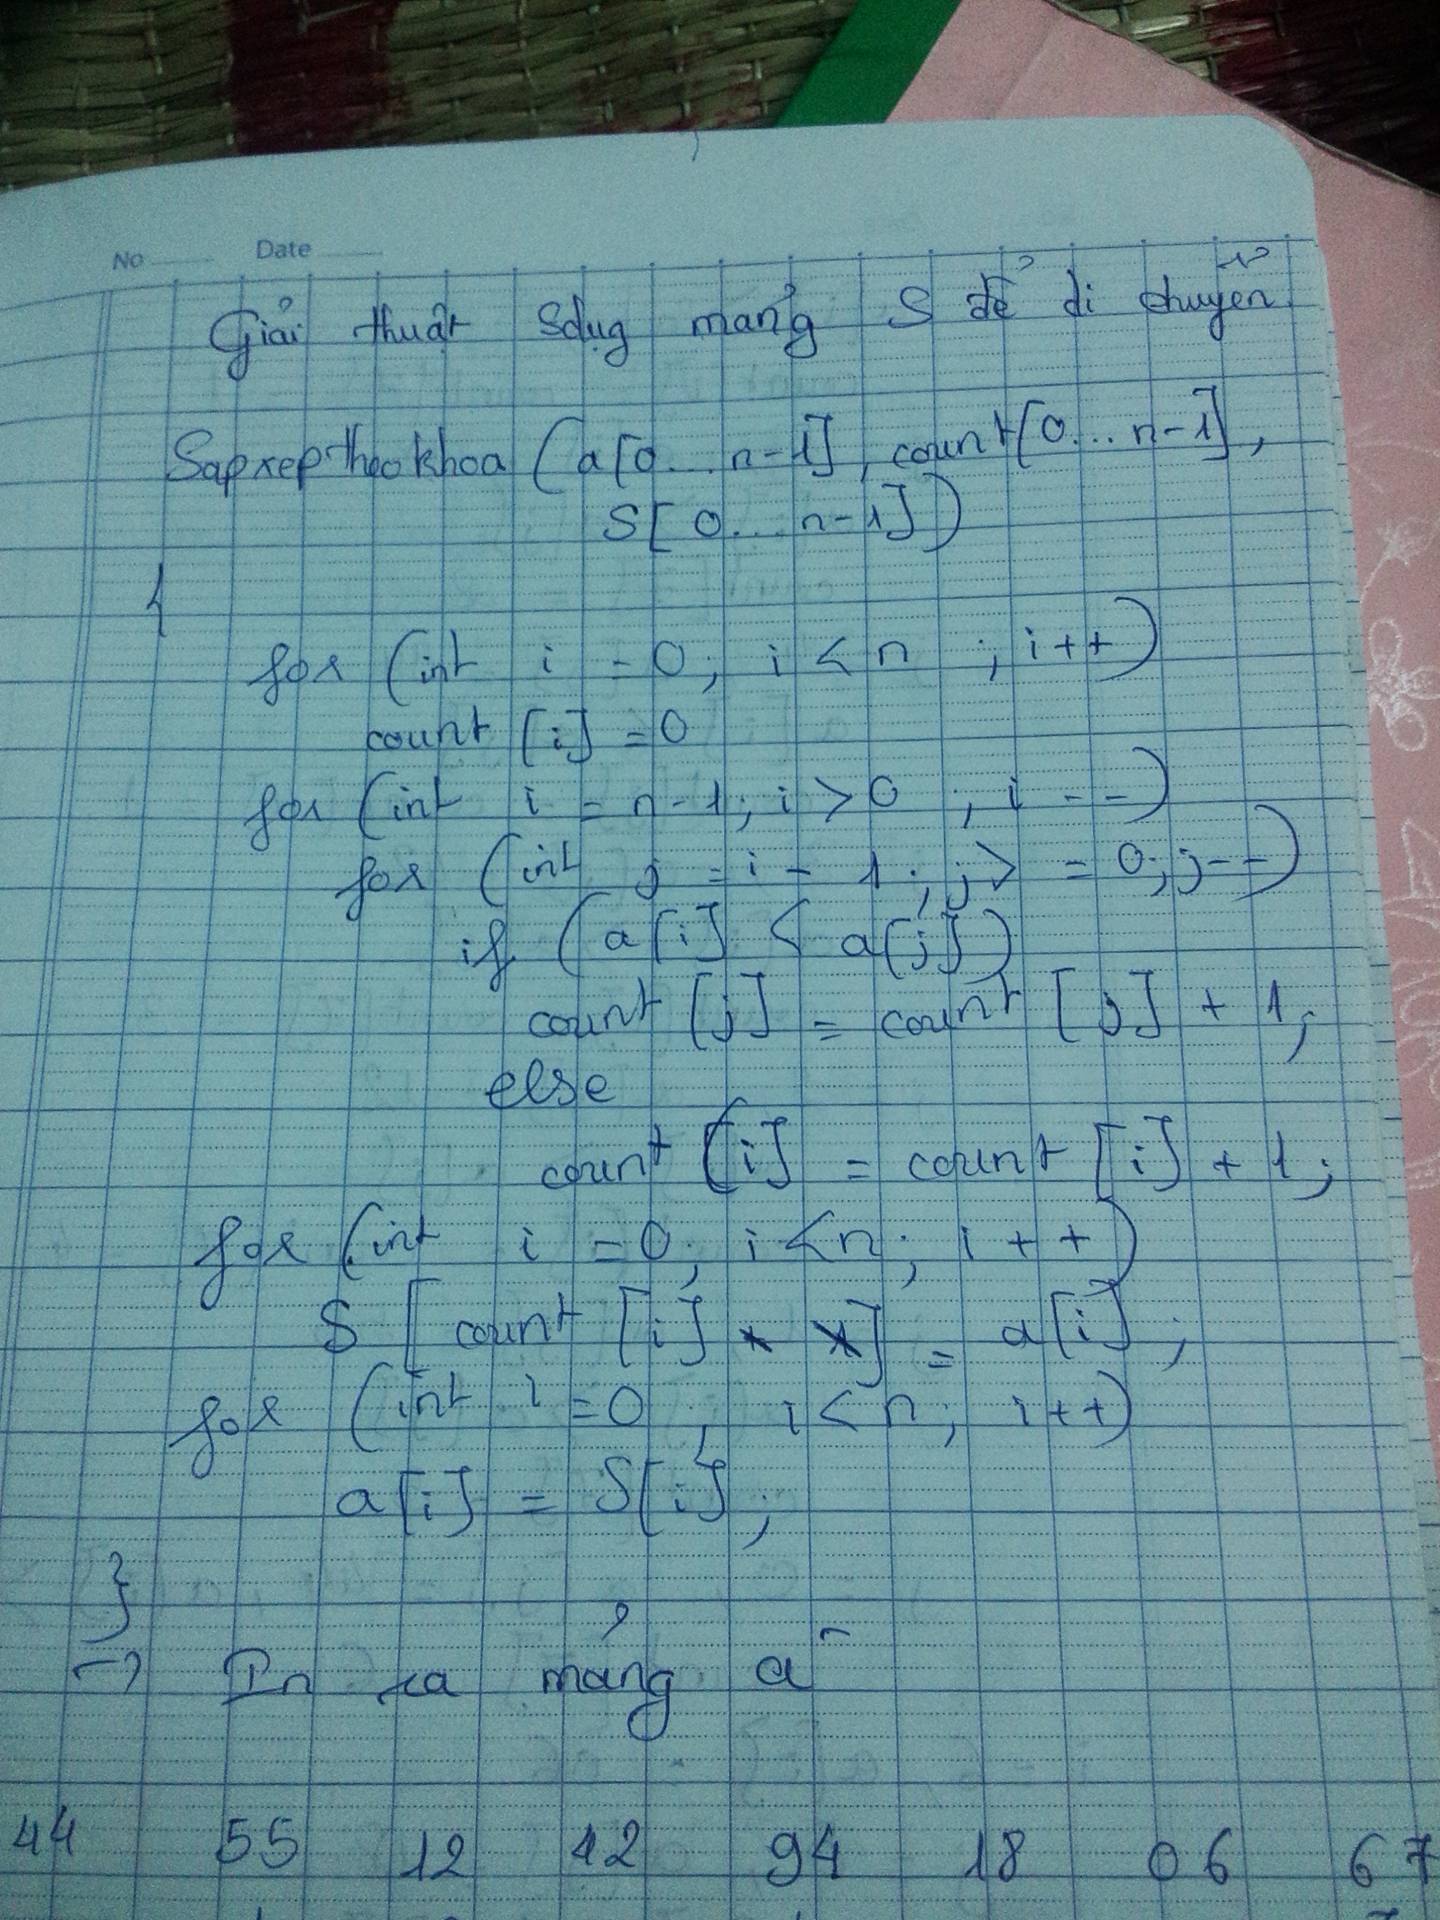 No Date
Giải thuật sdụg mảng S để di chuyển
Sapxeptheokhoa (a[0...n-1], count[0...n-1],
S[0...n-1])
{
for (int i = 0; i < n ; i++)
count [i] = 0
for (int i = n-1; i > 0 ; i--)
for (int j = i - 1; j > = 0; j--)
if (a[i] < a[j])
count [j] = count [j] + 1;
else
count [i] = count [i] + 1;
for (int i = 0; i < n; i++)
S [count [i]] = a[i];
for (int i = 0 ; i < n; i++)
a[i] = S[i];
}
→ In ra mảng a
44 55 12 42 94 18 06 67